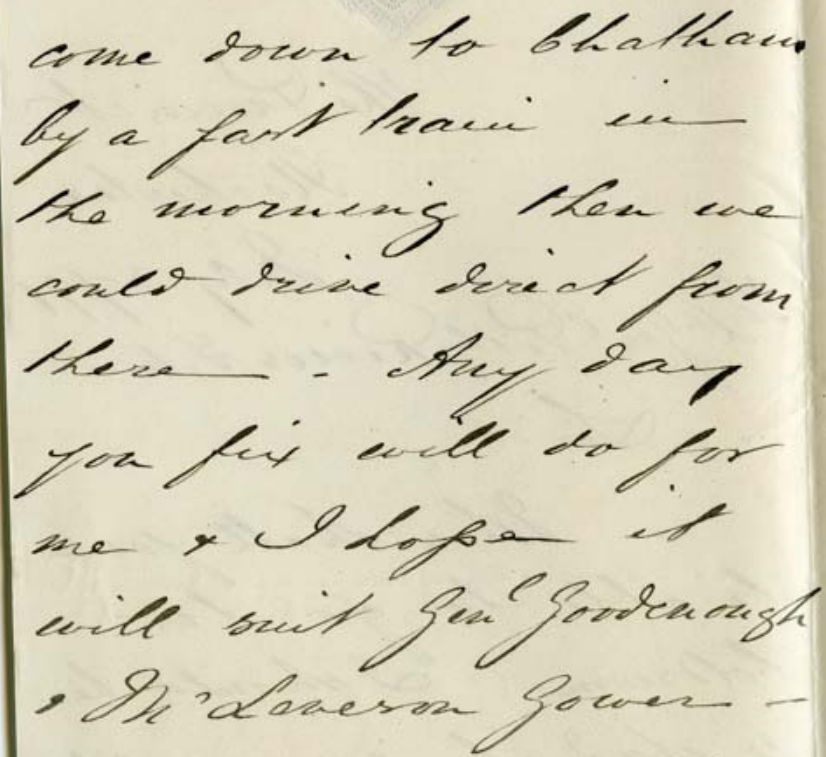 come down to Chatham
by a fast train in
the morning then we
could drive direct from
there - Any day
you fix will do for
me & I hope it
will suit Genl Goodenough
& Mr Leveson Gower -